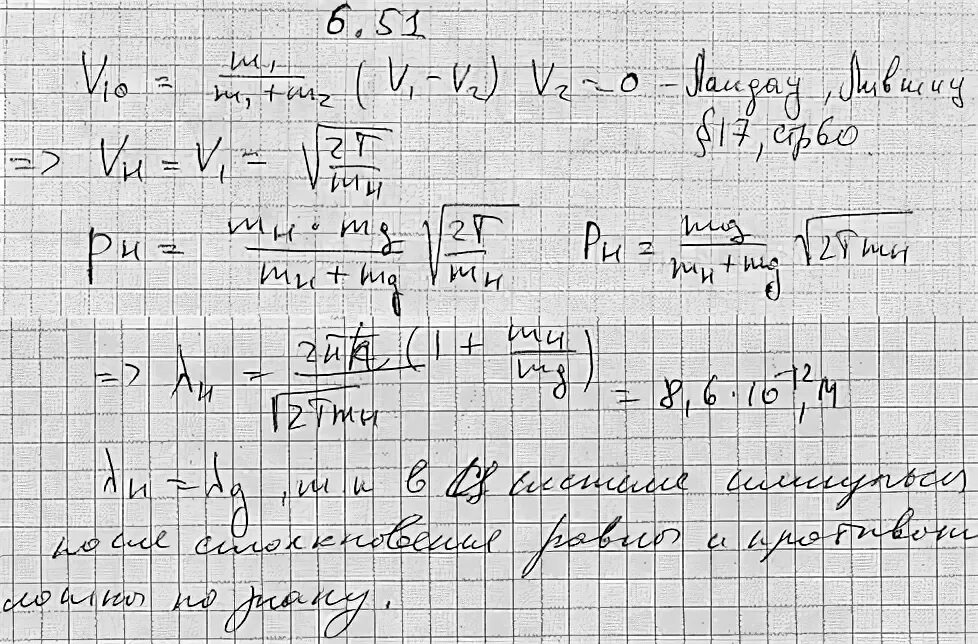 6.51
V₁₀ = m₁/(m₁+m₂) (V₁ − V₂) V₂ = 0 – Ландау, Лившиц
§17, стр 60.
=> Vн = V₁ = √(2T/mн)
pн = (mн · mg)/(mн + mg) √(2T/mн) Pн = mg/(mн + mg) √(2T mн)
=> λн = 2πħ/√(2T mн) (1 + mн/mg) = 8,6 · 10⁻¹² м
λн = λg, т к в системе импульсы
после столкновения равны и противопо
ложны по знаку.